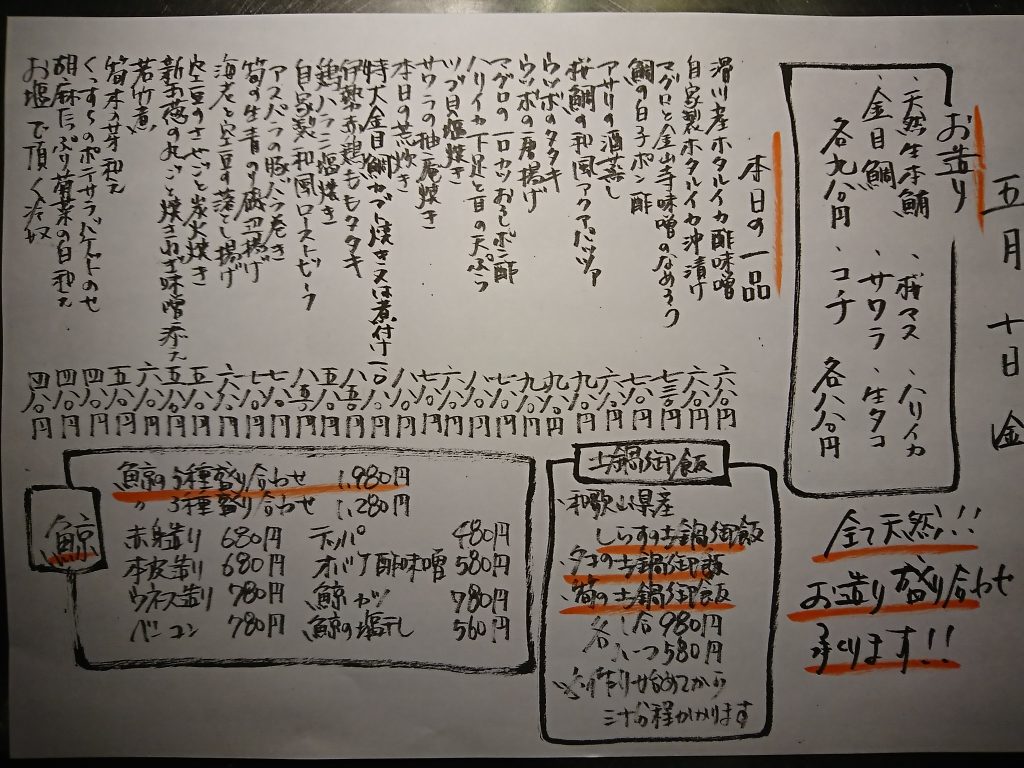 五月十日金
お造り
、天然生本鮪 、桜マス 、ハリイカ
、金目鯛 、サワラ 、生タコ
各九八〇円 、コチ 各八八〇円
全て天然!!
お造り盛り合わせ
承ります!!
本日の一品
滑川産ホタルイカ酢味噌 六八〇円
自家製ホタルイカ沖漬け 六八〇円
マグロと金山寺味噌のなめろう 七三〇円
鯛の白子ポン酢 七八〇円
アサリの酒蒸し 六八〇円
桜鯛の和風アクアパッツァ 九八〇円
ウツボのタタキ 九八〇円
ウツボの唐揚げ 九八〇円
マグロの一口カツおろしポン酢 八八〇円
ハリイカ下足と苗の天ぷら 八八〇円
ツブ貝の塩焼き 六八〇円
サワラの柚庵焼き 七八〇円
本日の荒炊き 八八〇円
特大金目鯛カブト焼き又は煮付け 一八〇〇円
伊勢赤鶏ももタタキ 八五〇円
鶏ハラミ塩焼き 五八〇円
自家製和風ローストビーフ 八五〇円
アスパラの豚バラ巻き 七八〇円
筍の生青のり磯辺揚げ 七八〇円
海老と空豆の落とし揚げ 六八〇円
空豆のさやごと炭火焼き 五八〇円
新玉葱の丸ごと焼き 味噌添え 五八〇円
若竹煮 六八〇円
筍木の芽和え 五八〇円
くっすらのポテサラバケットのせ 四八〇円
胡麻たっぷり 葉菜の白和え 四八〇円
お塩で頂く冷奴 四八〇円
土鍋御飯
、和歌山県産
しらすの土鍋御飯
、タコの土鍋御飯
、筍の土鍋御飯
各 一合 980円
おひつ 580円
※作り始めてから
三十分程かかります
鯨
鯨の5種盛り合わせ 1,980円
〃 3種盛り合わせ 1,280円
赤身造り 680円 テッパ 480円
本皮造り 680円 オバケ酢味噌 580円
ウネス造り 780円 鯨カツ 780円
ベーコン 780円 鯨の塩干し 560円